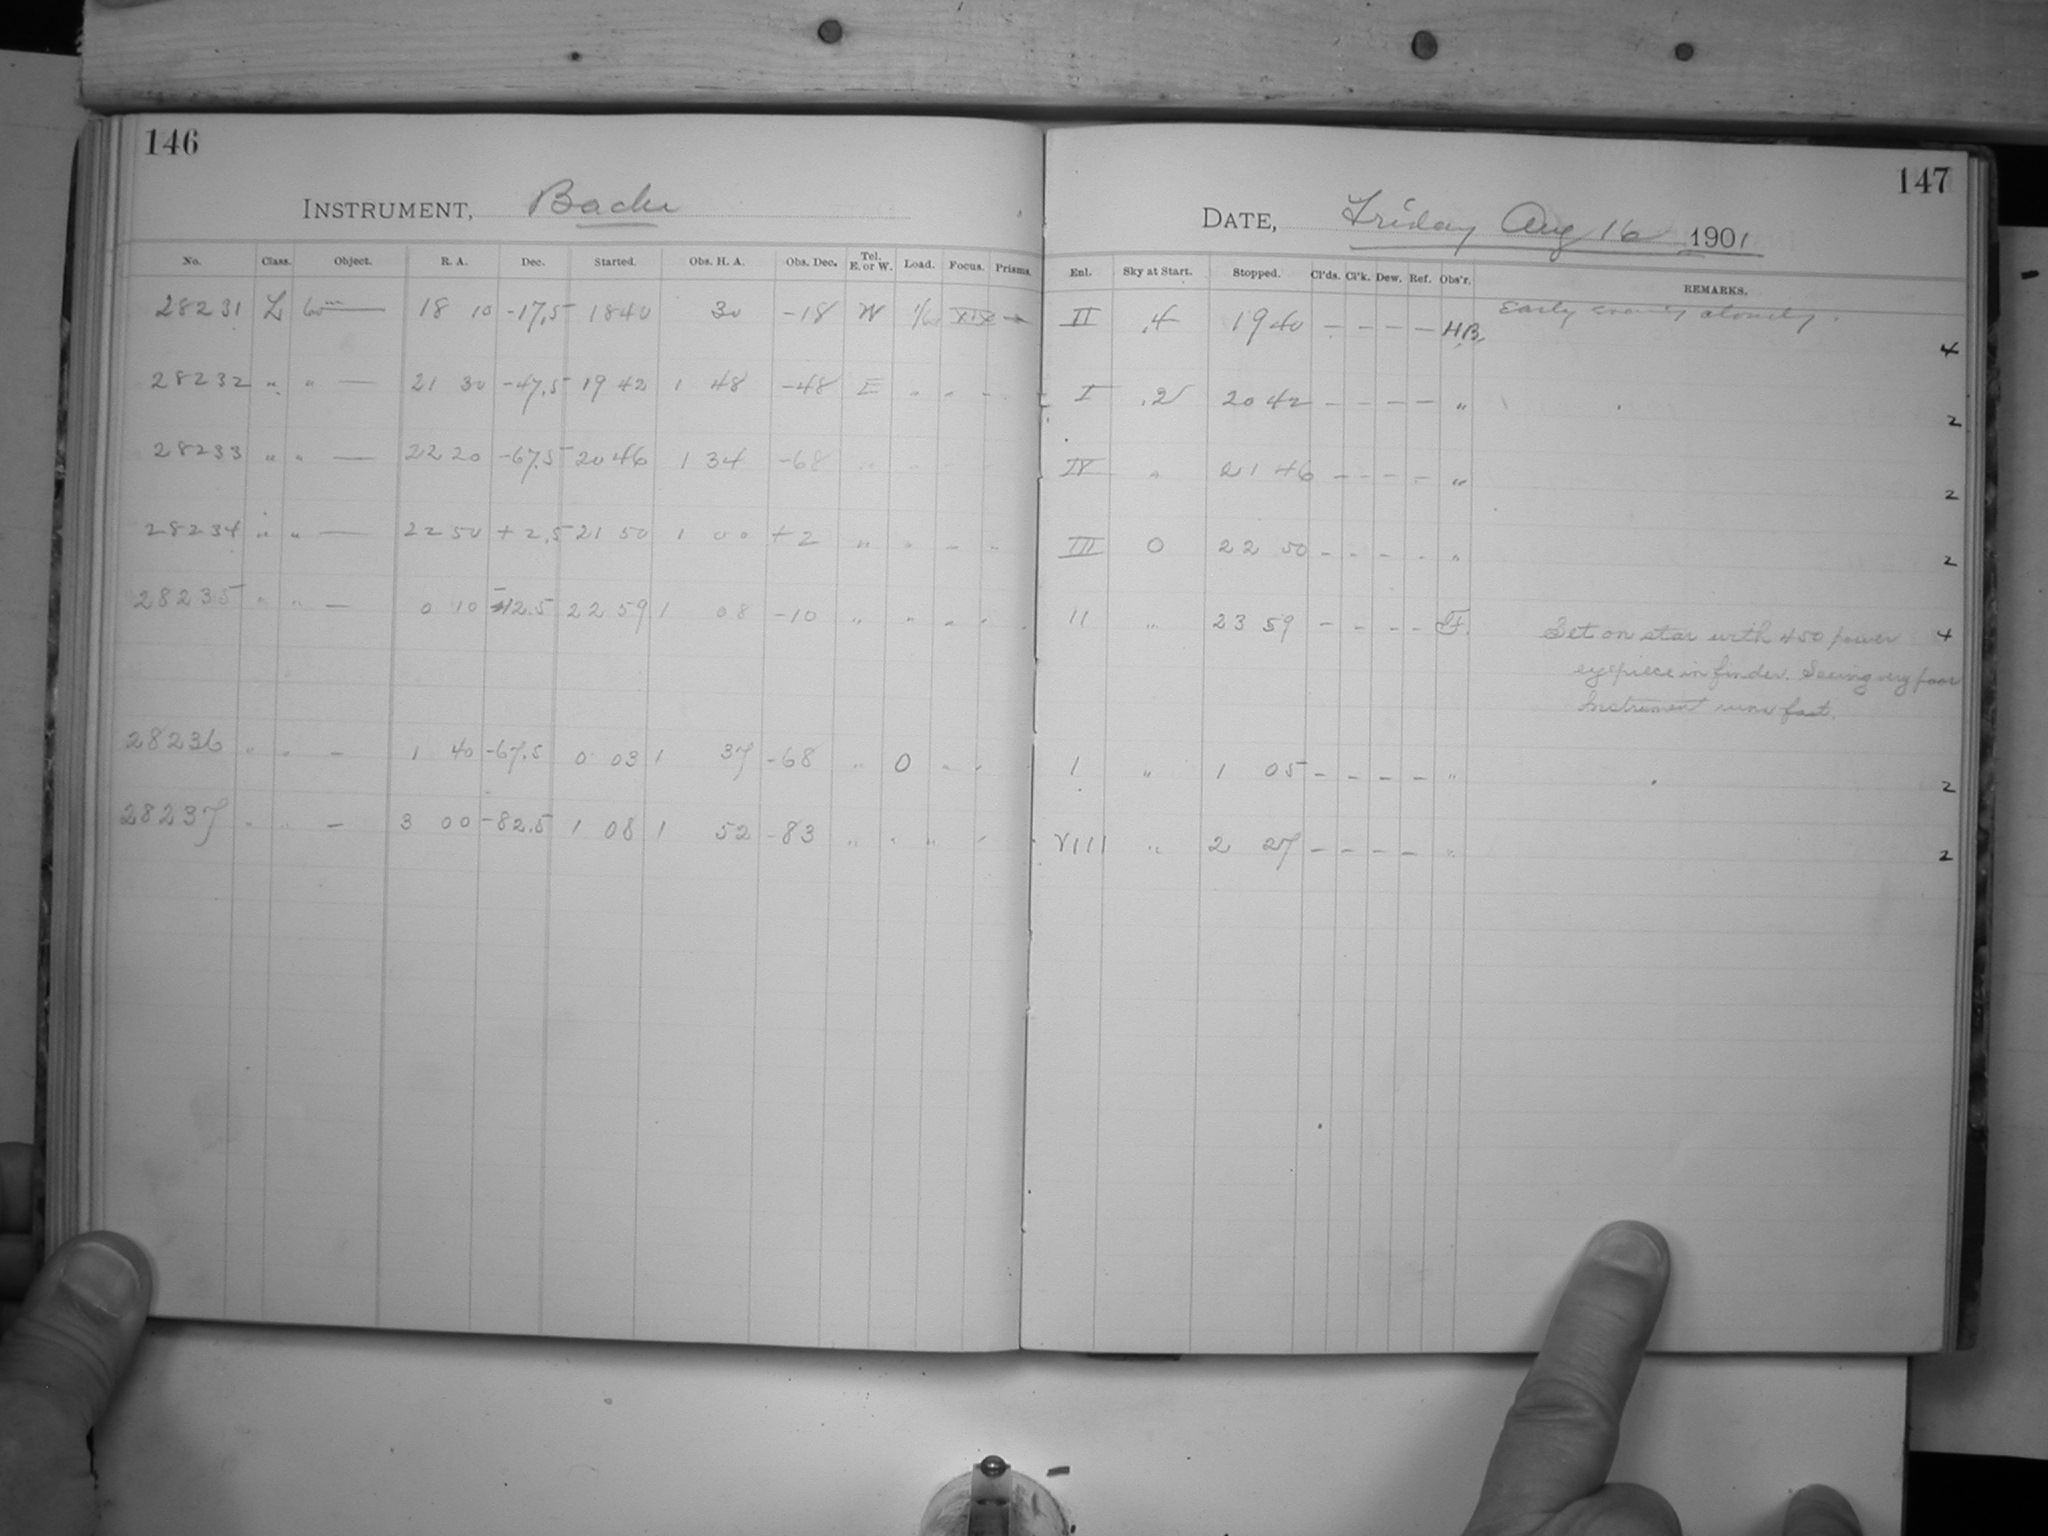 146
147
INSTRUMENT, Bache
DATE, Friday Aug 16 1901
No. Class. Object. R. A. Dec. Started. Obs. H. A. Obs. Dec. Tel. E. or W. Load. Focus. Prisms. Enl. Sky at Start. Stopped. Cl'ds. Cl'k. Dew. Ref. Obs'r. REMARKS.
28231 L 60m — 18 10 -17.5 1840 30 -18 W XIX — II .4 19 40 — — — — H.B. Early evening cloudy. 4
28232 " " — 21 30 -47.5 19 42 1 48 -48 E " " – I .2 20 42 – – – – " 2
28233 " " — 22 20 -67.5 20 46 1 34 -68 " " – – IV " 21 46 – – – – " 2
28234 " " — 22 50 + 2.5 21 50 1 00 +2 " " – " III 0 22 50 – – – – " 2
28235 " " — 0 10 -12.5 22 59 1 08 -10 " " " " II " 23 59 – – – – F. Set on star with 450 power 4
eyepiece in finder. Seeing very poor
Instrument runs fast.
28236 " " – 1 40 -67.5 0 03 1 37 -68 " 0 " " I " 1 05 – – – – " 2
28237 " " – 3 00 -82.5 1 08 1 52 -83 " " " " VIII " 2 27 – – – – " 2